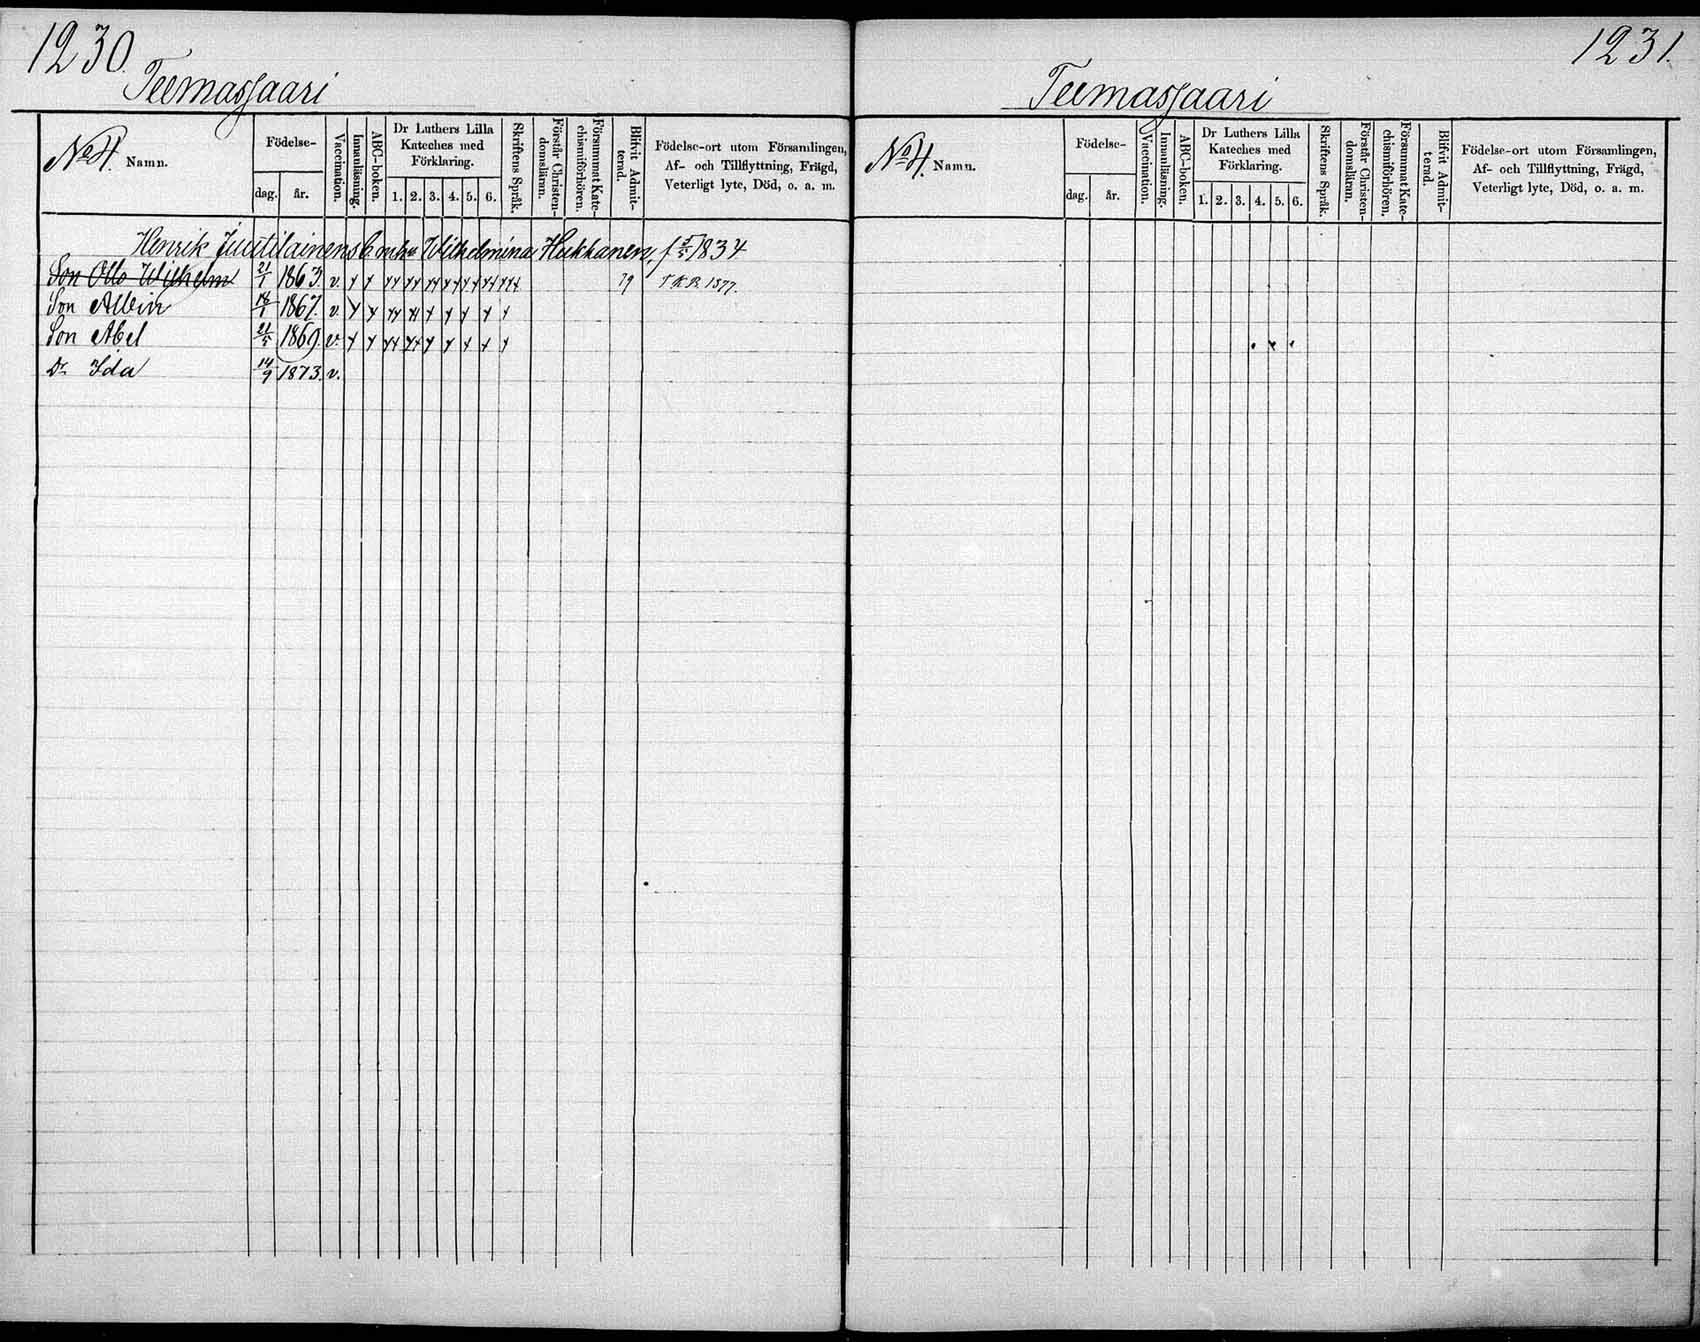 1230.
Teemassaari
No 4. Namn.
Födelse-
dag. år.
Vaccination.
Innanläsning.
ABC-boken.
Dr Luthers Lilla Kateches med Förklaring.
1. 2. 3. 4. 5. 6.
Skriftens Språk.
Förstår Christen-domsläran.
Försummat Kate-chismiförhören.
Blifvit Admit-terad.
Födelse-ort utom Församlingen,
Af- och Tillflyttning, Frägd,
Veterligt lyte, Död, o. a. m.
Henrik Juutilainens enka Wilhelmina Hukkanen, f 5/5 1834
Son Otto Wilhelm 21/1 1863. v. 79 1877.
Son Albin 1867. v.
Son Abel 21/5 1869. v.
Dr Ida 14/9 1873. v.
1231.
Teemassaari
No 4. Namn.
Födelse-
dag. år.
Vaccination.
Innanläsning.
ABC-boken.
Dr Luthers Lilla Kateches med Förklaring.
1. 2. 3. 4. 5. 6.
Skriftens Språk.
Förstår Christen-domsläran.
Försummat Kate-chismiförhören.
Blifvit Admit-terad.
Födelse-ort utom Församlingen,
Af- och Tillflyttning, Frägd,
Veterligt lyte, Död, o. a. m.